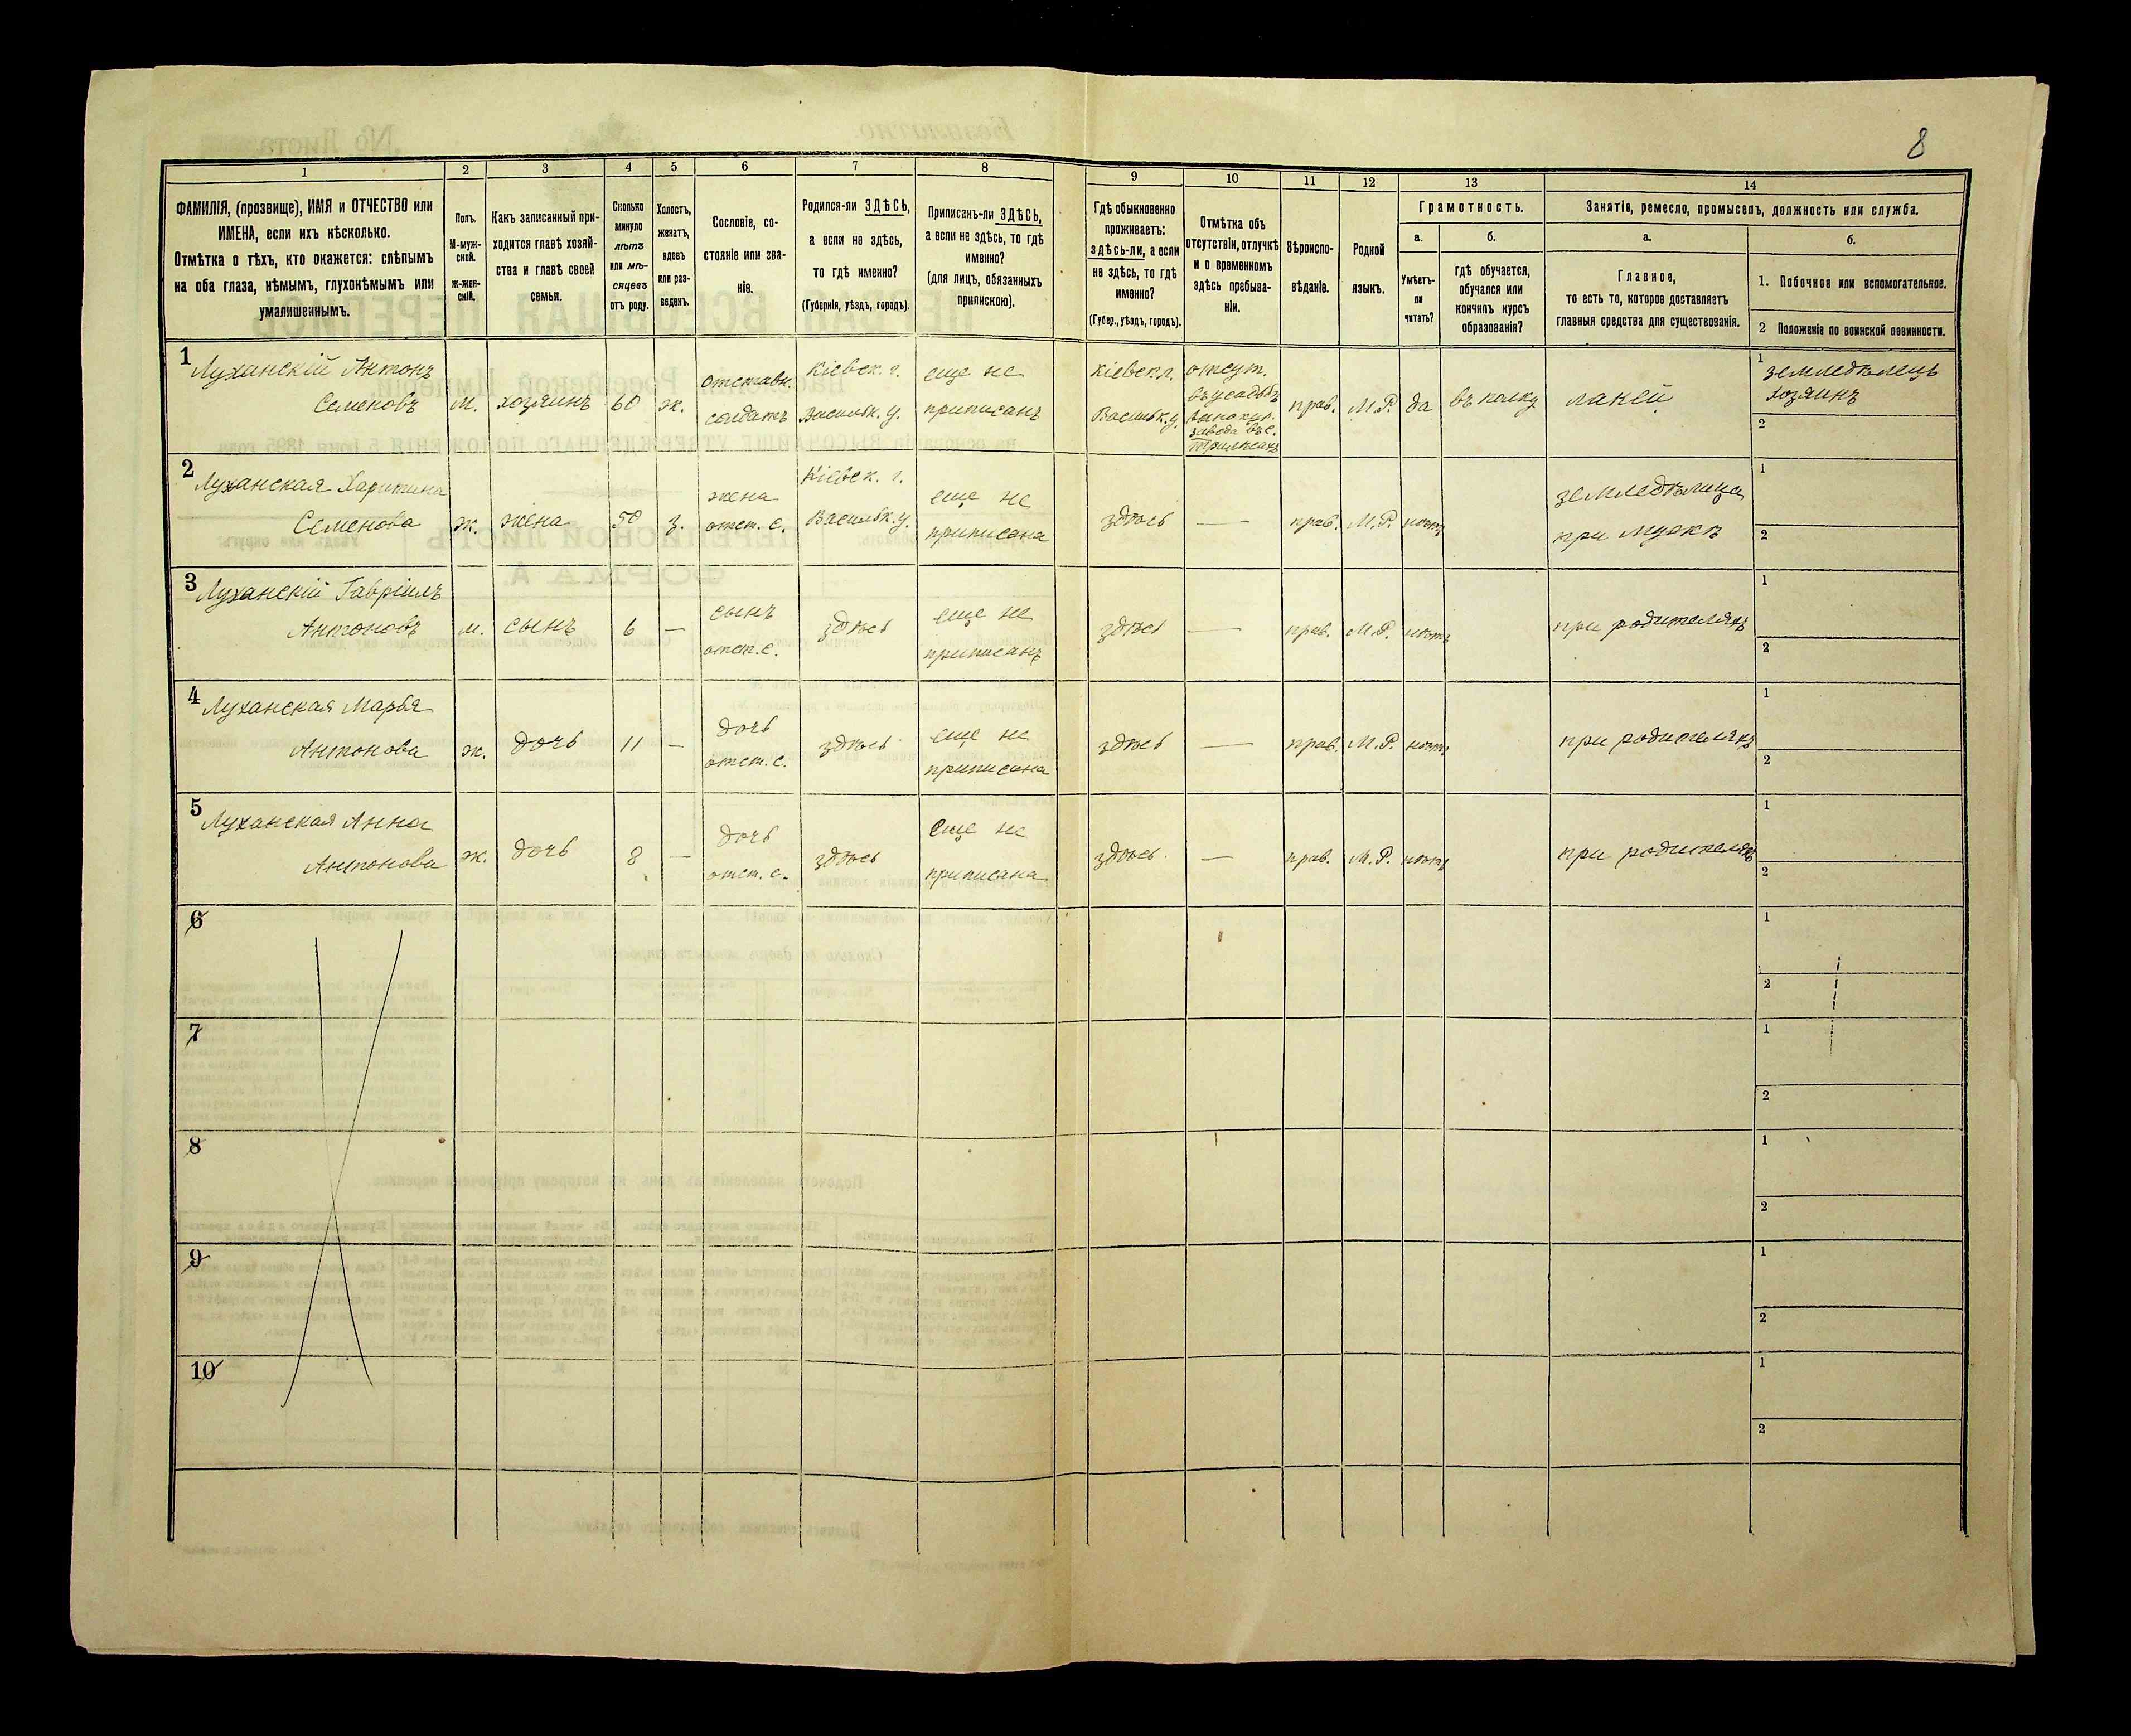 8
1
2
3
4
5
6
7
8
9
10
11
12
13
14
ФАМИЛІЯ, (прозвище), ИМЯ и ОТЧЕСТВО или
ИМЕНА, если ихъ нѣсколько.
Отмѣтка о тѣхъ, кто окажется: слѣпымъ
на оба глаза, нѣмымъ, глухонѣмымъ или
умалишеннымъ.
Полъ.
М-муж-
ской.
Ж-жен-
скій.
Какъ записанный при-
ходится главѣ хозяй-
ства и главѣ своей
семьи.
Сколько
минуло
лѣтъ
или мѣ-
сяцевъ
отъ роду.
Холостъ,
женатъ,
вдовъ
или раз-
веденъ.
Сословіе, со-
стояніе или зва-
ніе.
Родился-ли ЗДѢСЬ,
а если не здѣсь,
то гдѣ именно?
(Губернія, уѣздъ, городъ).
Приписанъ-ли ЗДѢСЬ,
а если не здѣсь, то гдѣ
именно?
(для лицъ, обязанныхъ
припискою).
Гдѣ обыкновенно
проживаетъ:
здѣсь-ли, а если
не здѣсь, то гдѣ
именно?
(Губер., уѣздъ, городъ).
Отмѣтка объ
отсутствіи, отлучкѣ
и о временномъ
здѣсь пребыва-
ніи.
Вѣроиспо-
вѣданіе.
Родной
языкъ.
Грамотность.
а.
Умѣетъ-
ли
читать?
б.
гдѣ обучается,
обучался или
кончилъ курсъ
образованія?
Занятіе, ремесло, промыселъ, должность или служба.
а.
Главное,
то есть то, которое доставляетъ
главныя средства для существованія.
б.
1. Побочное или вспомогательное.
2 Положеніе по воинской повинности.
1
Луханскій Антонъ
Семеновъ
м.
хозяинъ
60
ж.
отставн.
солдатъ
Кіевск. г.
Васильк. у.
еще не
приписанъ
Кіевск. г.
Васильк. у.
отсут.
въ усадьбѣ
винокур.
завода въ с.
прав.
М.Р.
да
въ полку
лакей
1
земледѣлецъ
хозяинъ
2
2
Луханская Харитина
Семенова
ж.
жена
50
з.
жена
отст. с.
Кіевск. г.
Васильк. у.
еще не
приписана
здѣсь
—
прав.
М.Р.
нѣтъ
земледѣлица
при мужѣ
1
2
3
Луханскій Гавріилъ
Антоновъ
м.
сынъ
6
—
сынъ
отст. с.
здѣсь
еще не
приписанъ
здѣсь
—
прав.
М.Р.
нѣтъ
при родителяхъ
1
2
4
Луханская Марья
Антонова
ж.
дочь
11
—
дочь
отст. с.
здѣсь
еще не
приписана
здѣсь
—
прав.
М.Р.
нѣтъ
при родителяхъ
1
2
5
Луханская Анна
Антонова
ж.
дочь
8
—
дочь
отст. с.
здѣсь
еще не
приписана
здѣсь
—
прав.
М.Р.
нѣтъ
при родителяхъ
1
2
6
1
2
7
1
2
8
1
2
9
1
2
10
1
2